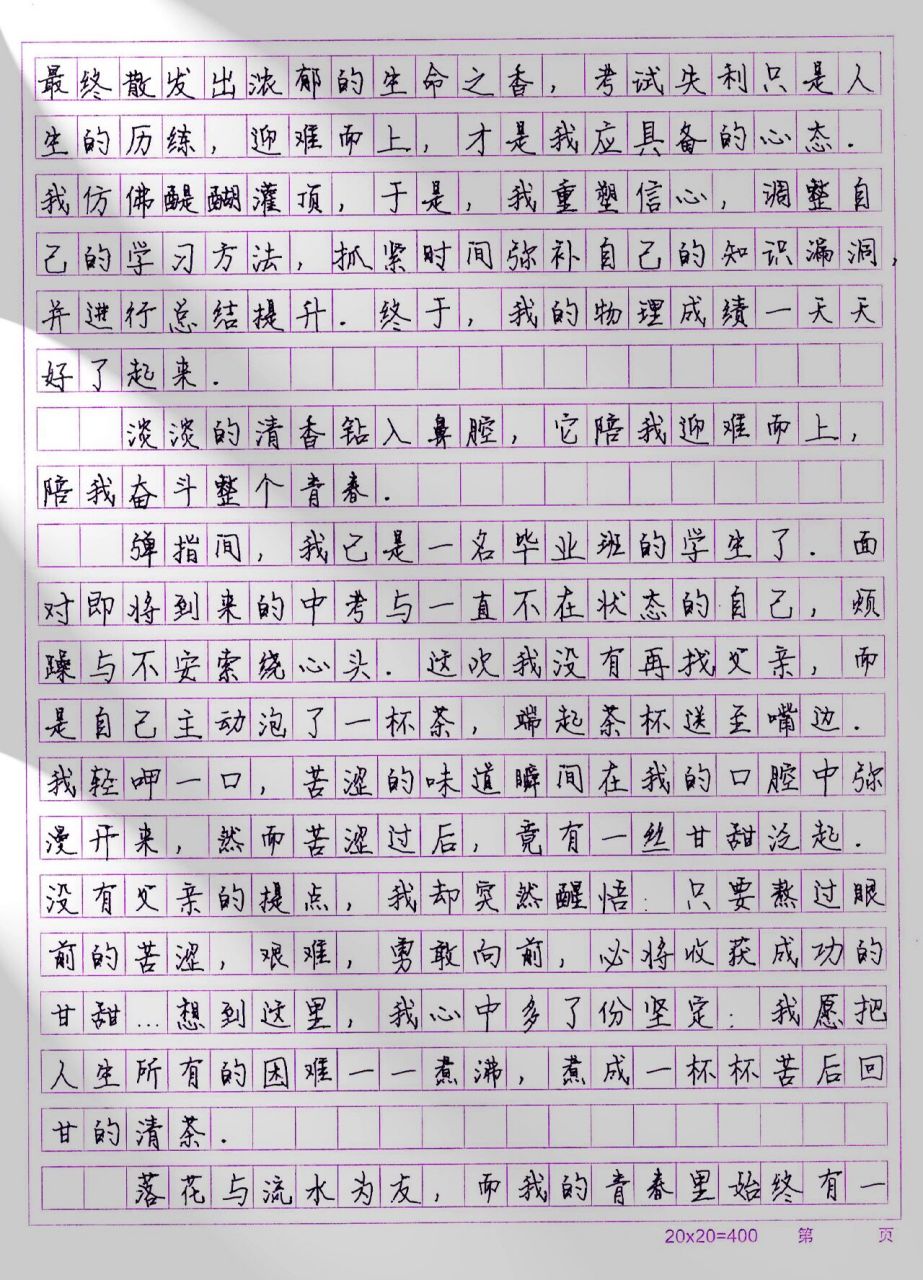 最终散发出浓郁的生命之香，考试失利只是人
生的历练，迎难而上，才是我应具备的心态.
我仿佛醍醐灌顶，于是，我重塑信心，调整自
己的学习方法，抓紧时间弥补自己的知识漏洞，
并进行总结提升.终于，我的物理成绩一天天
好了起来.
淡淡的清香钻入鼻腔，它陪我迎难而上，
陪我奋斗整个青春.
弹指间，我已是一名毕业班的学生了.面
对即将到来的中考与一直不在状态的自己，烦
躁与不安索绕心头.这次我没有再找父亲，而
是自己主动泡了一杯茶，端起茶杯送至嘴边.
我轻呷一口，苦涩的味道瞬间在我的口腔中弥
漫开来，然而苦涩过后，竟有一丝甘甜泛起.
没有父亲的提点，我却突然醒悟：只要熬过眼
前的苦涩，艰难，勇敢向前，必将收获成功的
甘甜…想到这里，我心中多了份坚定：我愿把
人生所有的困难一一煮沸，煮成一杯杯苦后回
甘的清茶.
落花与流水为友，而我的青春里始终有一
20x20=400 第 页